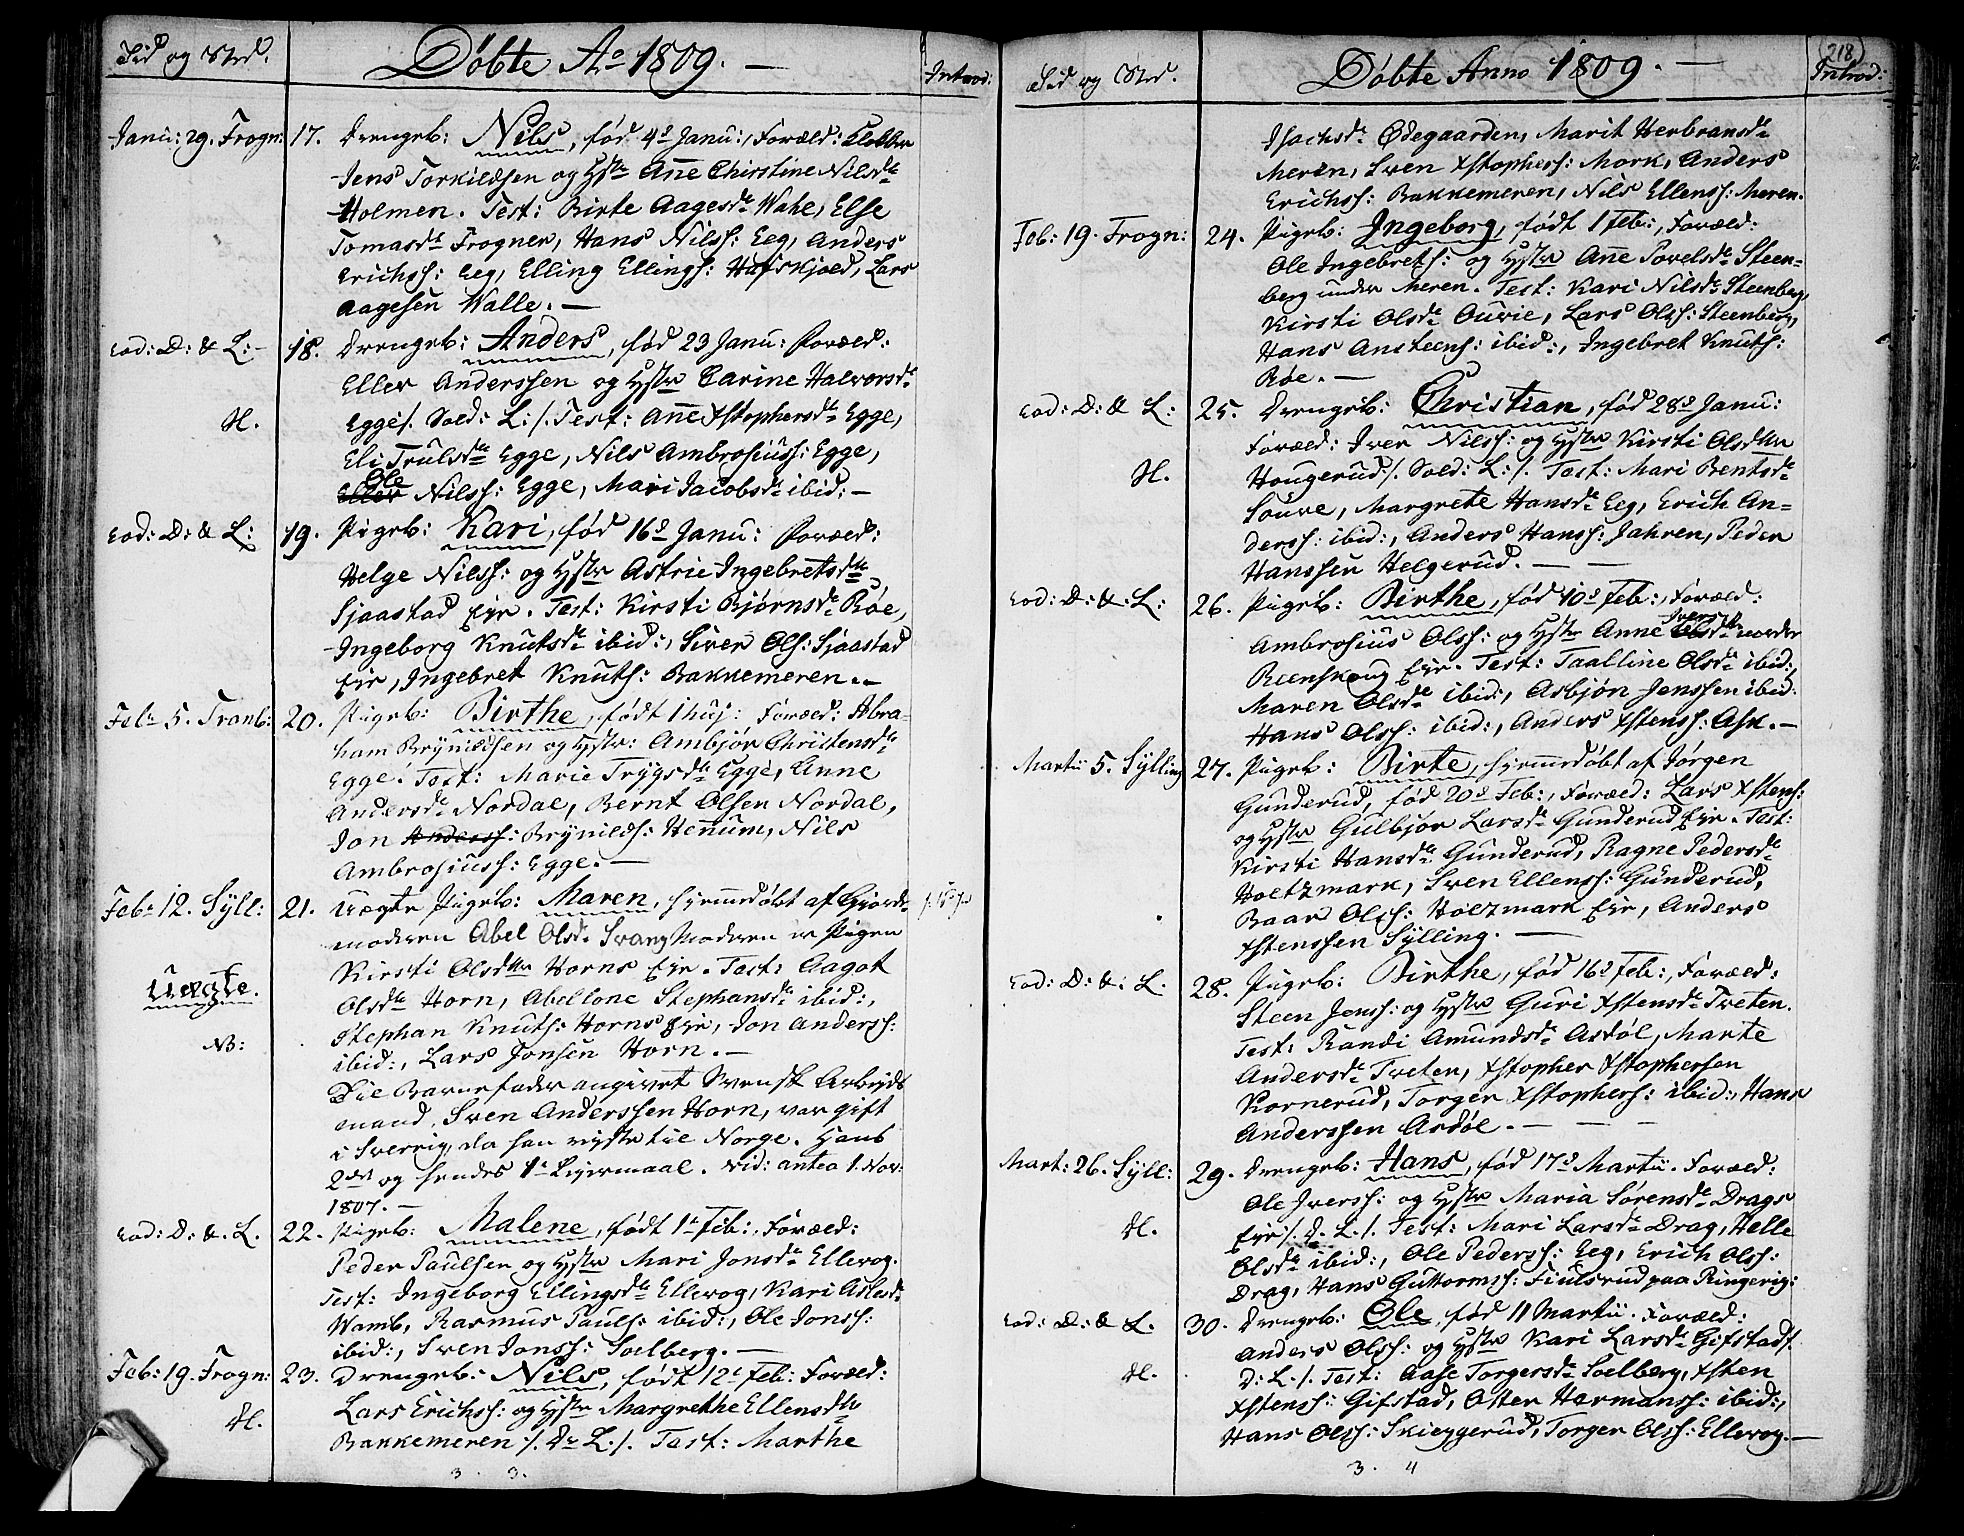 Tid og Sted. Døbte Ao 1809. — Introd:
Janu: 29. Frogn: 17. Drengeb: Nils, fød 4de Janu:, Foræld: Klokker
Jens Torkildsen og Hstr Anne Chirstine Nilsdr
Holmen. Test: Birte Aagesdr Wahe, Else
Tomasdr Frogner, Hans Nilss: Eeg, Anders
Erichss: Eeg, Elling Ellings: Hafskjold, Lars
Aagesen Walle. —
eod: D: & L: 18. Drengeb: Anders, fød 23 Janu: Foræld:
Eller Anderssen og Hstr Carine Halvorsdr
H. Egge /. Sold: L: /. Test: Anne Xstophersdr Egge,
Eli Trulsdr Egge, Nils Ambrosiuss: Egge,
Ole
Eller Nilss: Egge, Mari Jacobsdr ibid: —
eod: D: & L: 19. Pigeb: Kari, fød 16de Janu: Foræld:
Helge Nilss: og Hstr Astrie Ingebretsdr
Sjaastad Eje. Test: Kirsti Bjørnsdr Røe,
Ingeborg Knutsdr ibid:, Siver Ols: Sjaastad
Eje, Ingebret Knuts: Bakkemeren. —
Febr 5. Tranb: 20. Pigeb: Birthe, født 1 huj: Foræld: Abra-
ham Brynildsen og Hstr: Ambjør Christensdr
Egge. Test: Marie Trygsdr Egge, Anne
Andersdr Nordal, Bernt Olsen Nordal,
Jon Anderss: Brynilds: Hennum, Nils
Ambrosiuss: Egge. —
Febr 12. Syll: 21. Uægte Pigeb: Maren, hjemmedøbt af Giorde-
moderen Abel Olsdr Svang Moderen er Pigen
Kirsti Olsdtr Horns Eje. Test: Aagot
Uægte. Olsdtr Horn, Abellone Stephansdr ibid:,
Stephan Knuts: Horns Eje, Jon Anderss:
NB: ibid:, Lars Jonsen Horn. —
Til Barnefader angivet Svensk Arbejds
mand, Sven Anderssen Horn, var gift
i Sverrig, da han rejste til Norge. Hans
2det og hendes 1te Lejermaal. vid: antea 1. Nov:
1807. —
eod: D: &. L. 22. Pigeb: Malene, født 1te Feb:, Foræld:
Peder Paulsen og Hstr Mari Jonsdr Ellevog.
Test: Ingeborg Ellingsdr Ellevog, Kari Aslesdr
Wamb, Rasmus Pauls: ibid:, Ole Jonss:
ibid:, Sven Jonss: Solberg. —
Feb: 19. Frogn: 23. Drengeb: Nils, født 12te Feb: Foræld:
Lars Erichss: og Hstr Margrethe Ellensdtr
H. Bakkemeren /. D: L: /. Test: Marthe
3. 3.
Tid og Sted. Døbte Anno 1809. — Introd:
218
Isachsdr Ødegaarden, Marit Herbransdr
Meren, Sven Xstophers: Mork, Anders
Erichss: Bakkemeren, Nils Ellenss: Meren.
Feb: 19. Frogn: 24. Pigeb: Ingeborg, født 1 Feb:, Foræld:
Ole Ingebrets: og Hstr Anne Povelsdr Steen-
berg under Meren. Test: Kari Nilsdr Steenberg,
Kirsti Olsdr Ouvie, Lars Olss: Steenberg,
Hans Ansteens: ibid:, Ingebret Knuts:
Røe. —
eod: D: & L: 25. Drengeb: Christian, fød 28de Janu:
Foræld: Iver Nilss: og Hstr Kirsti Olsdtr
H. Hougerud /. Sold: L: /. Test: Mari Bentsdr
Souve, Margrete Hansdr Eeg, Erich An-
derss: ibid:, Anders Hanss: Jahren, Peder
Hanssen Helgerud. —
eod: D: &: L: 26. Pigeb: Birthe, fød 10de Feb:, Foræld:
Ivers
Ambrosius Olss: og Hstr Anne Olsdr norder
Reenskoug Eje. Test: Taalline Olsdr ibid:,
Maren Olsdr ibid:, Asbjøn Jenssen ibid:
Hans Olss: ibid:, Anders Xstenss: Ask. —
Martii 5. Sylling 27. Pigeb: Birte, hjemmedøbt af Jørgen
Gunderud, fød 20de Feb:, Foræld: Lars Xstens:
og Hstr Gulbjør Larsdr Gunderud Eje. Test:
Kirsti Hansdr Gunderud, Ragne Pedersdr
Holtzmark, Sven Ellenss: Gunderud,
Baar Olss: Holtzmark Eje, Anders
Xstenssen Sylling. —
eod: D: &: L. 28. Pigeb: Birthe, fød 16de Feb:, Foræld:
Steen Jenss: og Hstr Guri Xstensdr Tveten.
Test: Randi Amundsdr Asdøl, Marte
Andersdr Tveten, Xstopher Xstophersen
Kornerud, Torger Xstophers: ibid:, Hans
Anderssen Asdøl. —
Mart: 26. Syll: 29. Drengeb: Hans, fød 17de Martii. Foræld:
Ole Iverss: og Hstr Maria Sørensdr Drags
H. Eje /. D. L. /. Test: Mari Larsdr Drag, Helle
Olsdr ibid:, Ole Pederss: Eeg, Erich Olss:
Drag, Hans Guttormss: Fiulsrud paa Ringerig:
eod: D: & L. 30. Drengeb: Ole, fød 11 Martii. Foræld:
Anders Olss: og Hstr Kari Larsdr Gifstad /.
H. D: L: /. Test: Aase Torgersdr Solberg, Xsten
Xstenss: Gifstad, Otter Hermanss: ibid:,
Hans Olss: Skieggerud, Torger Olss: Ellevog. —
3. 4